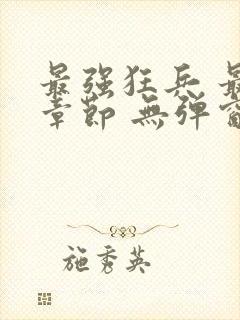 最强狂兵 最
章節 無弹窗
施秀英